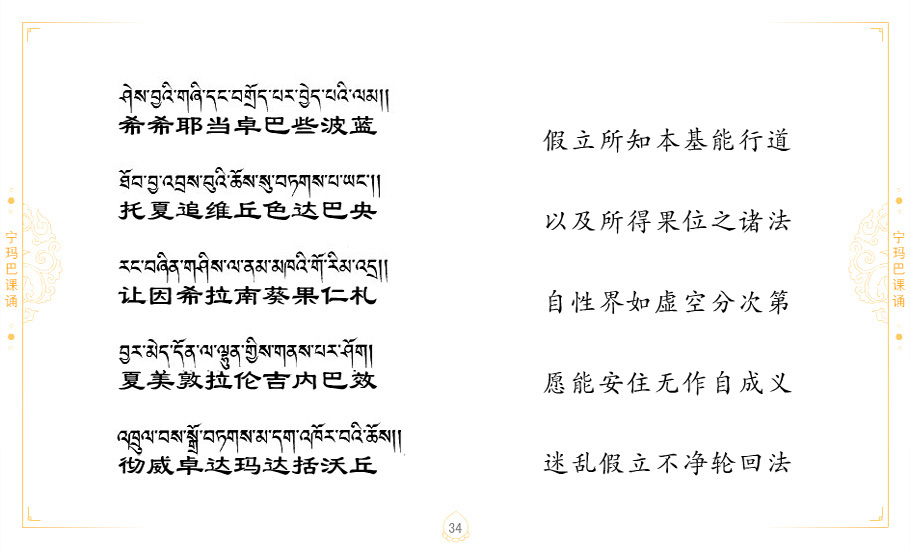 ཤེས་བྱའི་གཞི་དང་བགྲོད་པར་བྱེད་པའི་ལམ།།
希希耶当卓巴些波蓝
ཐོབ་བྱ་འབྲས་བུའི་ཆོས་སུ་བཏགས་པ་ཡང་།།
托夏追维丘色达巴央
རང་བཞིན་གཤིས་ལ་ནམ་མཁའི་གོ་རིམ་འདྲ།།
让因希拉南葵果仁札
བྱར་མེད་དོན་ལ་ལྷུན་གྱིས་གནས་པར་ཤོག།
夏美敦拉伦吉内巴效
འཁྲུལ་བས་སྒྲོ་བཏགས་མ་དག་འཁོར་བའི་ཆོས།།
彻威卓达玛达括沃丘
假立所知本基能行道
以及所得果位之诸法
自性界如虚空分次第
愿能安住无作自成义
迷乱假立不净轮回法
宁玛巴课诵
宁玛巴课诵
34